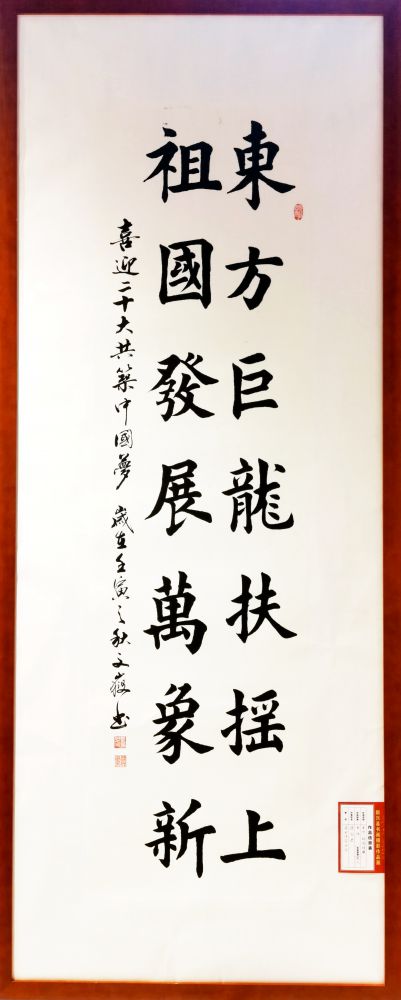 東方巨龍扶摇上
祖國發展萬象新
喜迎二十大共築中國夢 歲在壬寅之秋文巖书